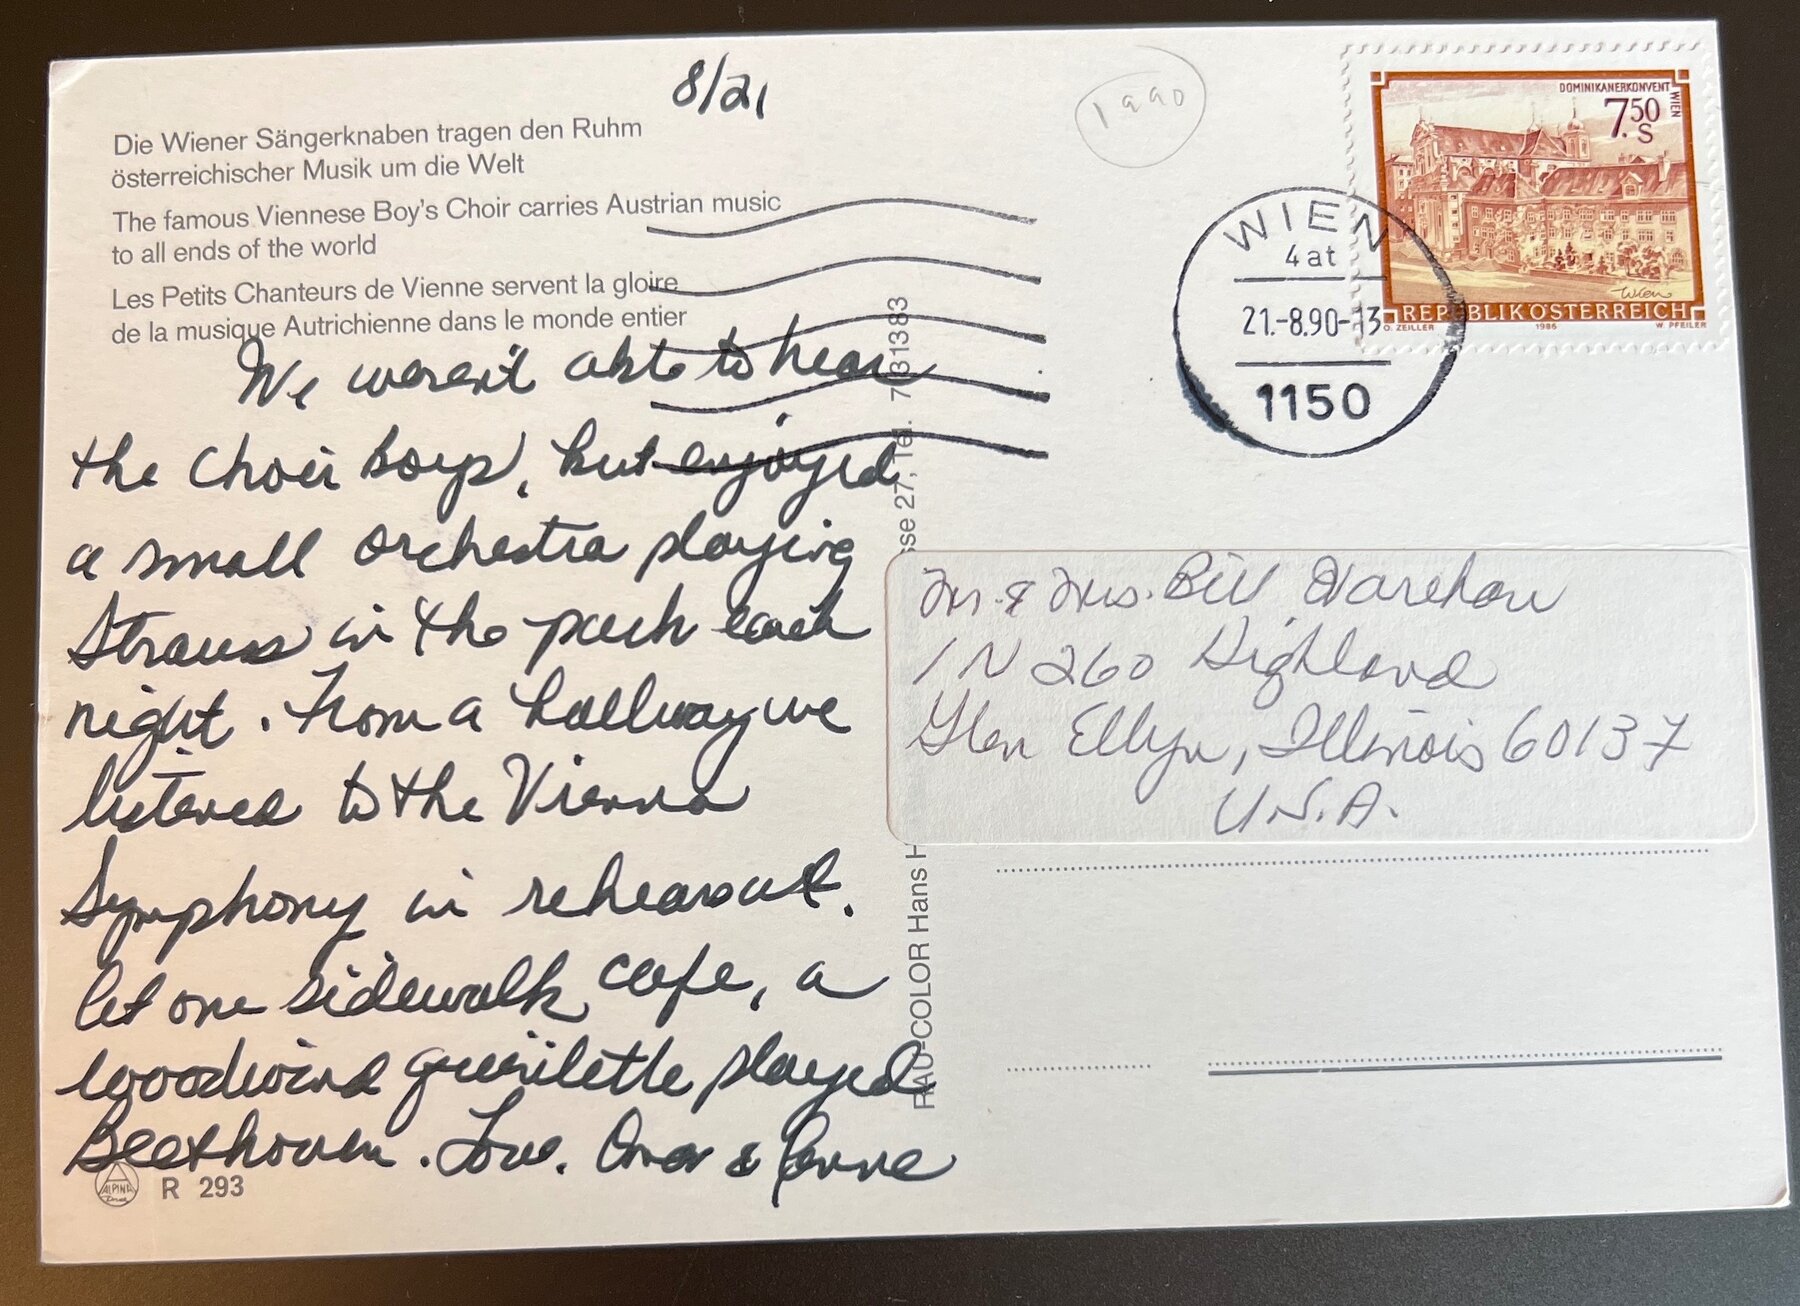 8/21
1990
Die Wiener Sängerknaben tragen den Ruhm
österreichischer Musik um die Welt
The famous Viennese Boy's Choir carries Austrian music
to all ends of the world
Les Petits Chanteurs de Vienne servent la gloire
de la musique Autrichienne dans le monde entier
We weren't able to hear
the choir boys, but enjoyed
a small orchestra playing
Strauss in the park each
night. From a hallway we
listened to the Vienna
Symphony in rehearsal.
At one sidewalk cafe, a
woodwind played
Beethoven. Love. &
ALPINA
Druck
R 293
RAU-COLOR Hans
sse 27, Tel. 7331383
DOMINIKANERKONVENT
WIEN
7.50
S
Wien
REPUBLIK ÖSTERREICH
O. ZEILLER 1986 W. PFEILER
WIEN
4 at
21.-8.90-13
1150
Mr. & Mrs. Bill
1 N 260 Highland
Glen Ellyn, Illinois 60137
U.S.A.